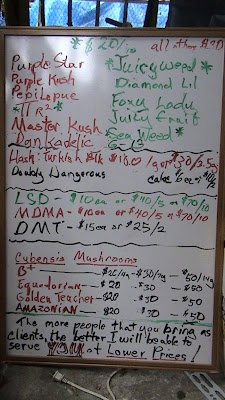 * $20/1g all other $10
Purple Star
Purple Kush
Pepi Lapue
*π r²*
Master Kush
Dankadelic
*Juicy Weed*
Diamond Lil
Foxy Lady
Juicy Fruit
Sea Weed*
G-13
Hash: Turkish Blk $1
Doubly Dangerous
LSD - $10 ea or $40/5 or $70/10
MDMA - $10 ea or $40/5 or $70/10
DMT - $15 ea or $25/2
Cubensis Mushrooms
B+
Equadorian - $20 - $30 - $50
Golden Teacher - $20 $30 - $50
AMAZONIAN - $20 $30 - $50
The more people that you bring as
clients, the better I will be able to
serve YOU at Lower Prices!